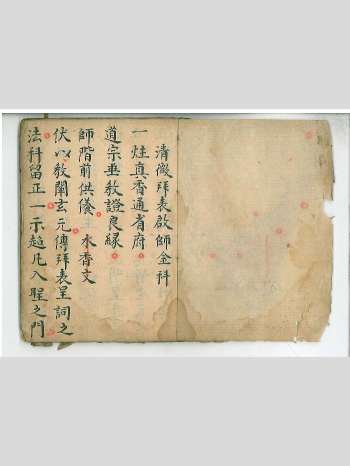 清微拜表啟師金科
一炷真香通省府
道宗垂教證良緣
師階前供養 水香文
伏以教闡玄元傳拜表呈詞之
法科留正一示超凡入聖之門